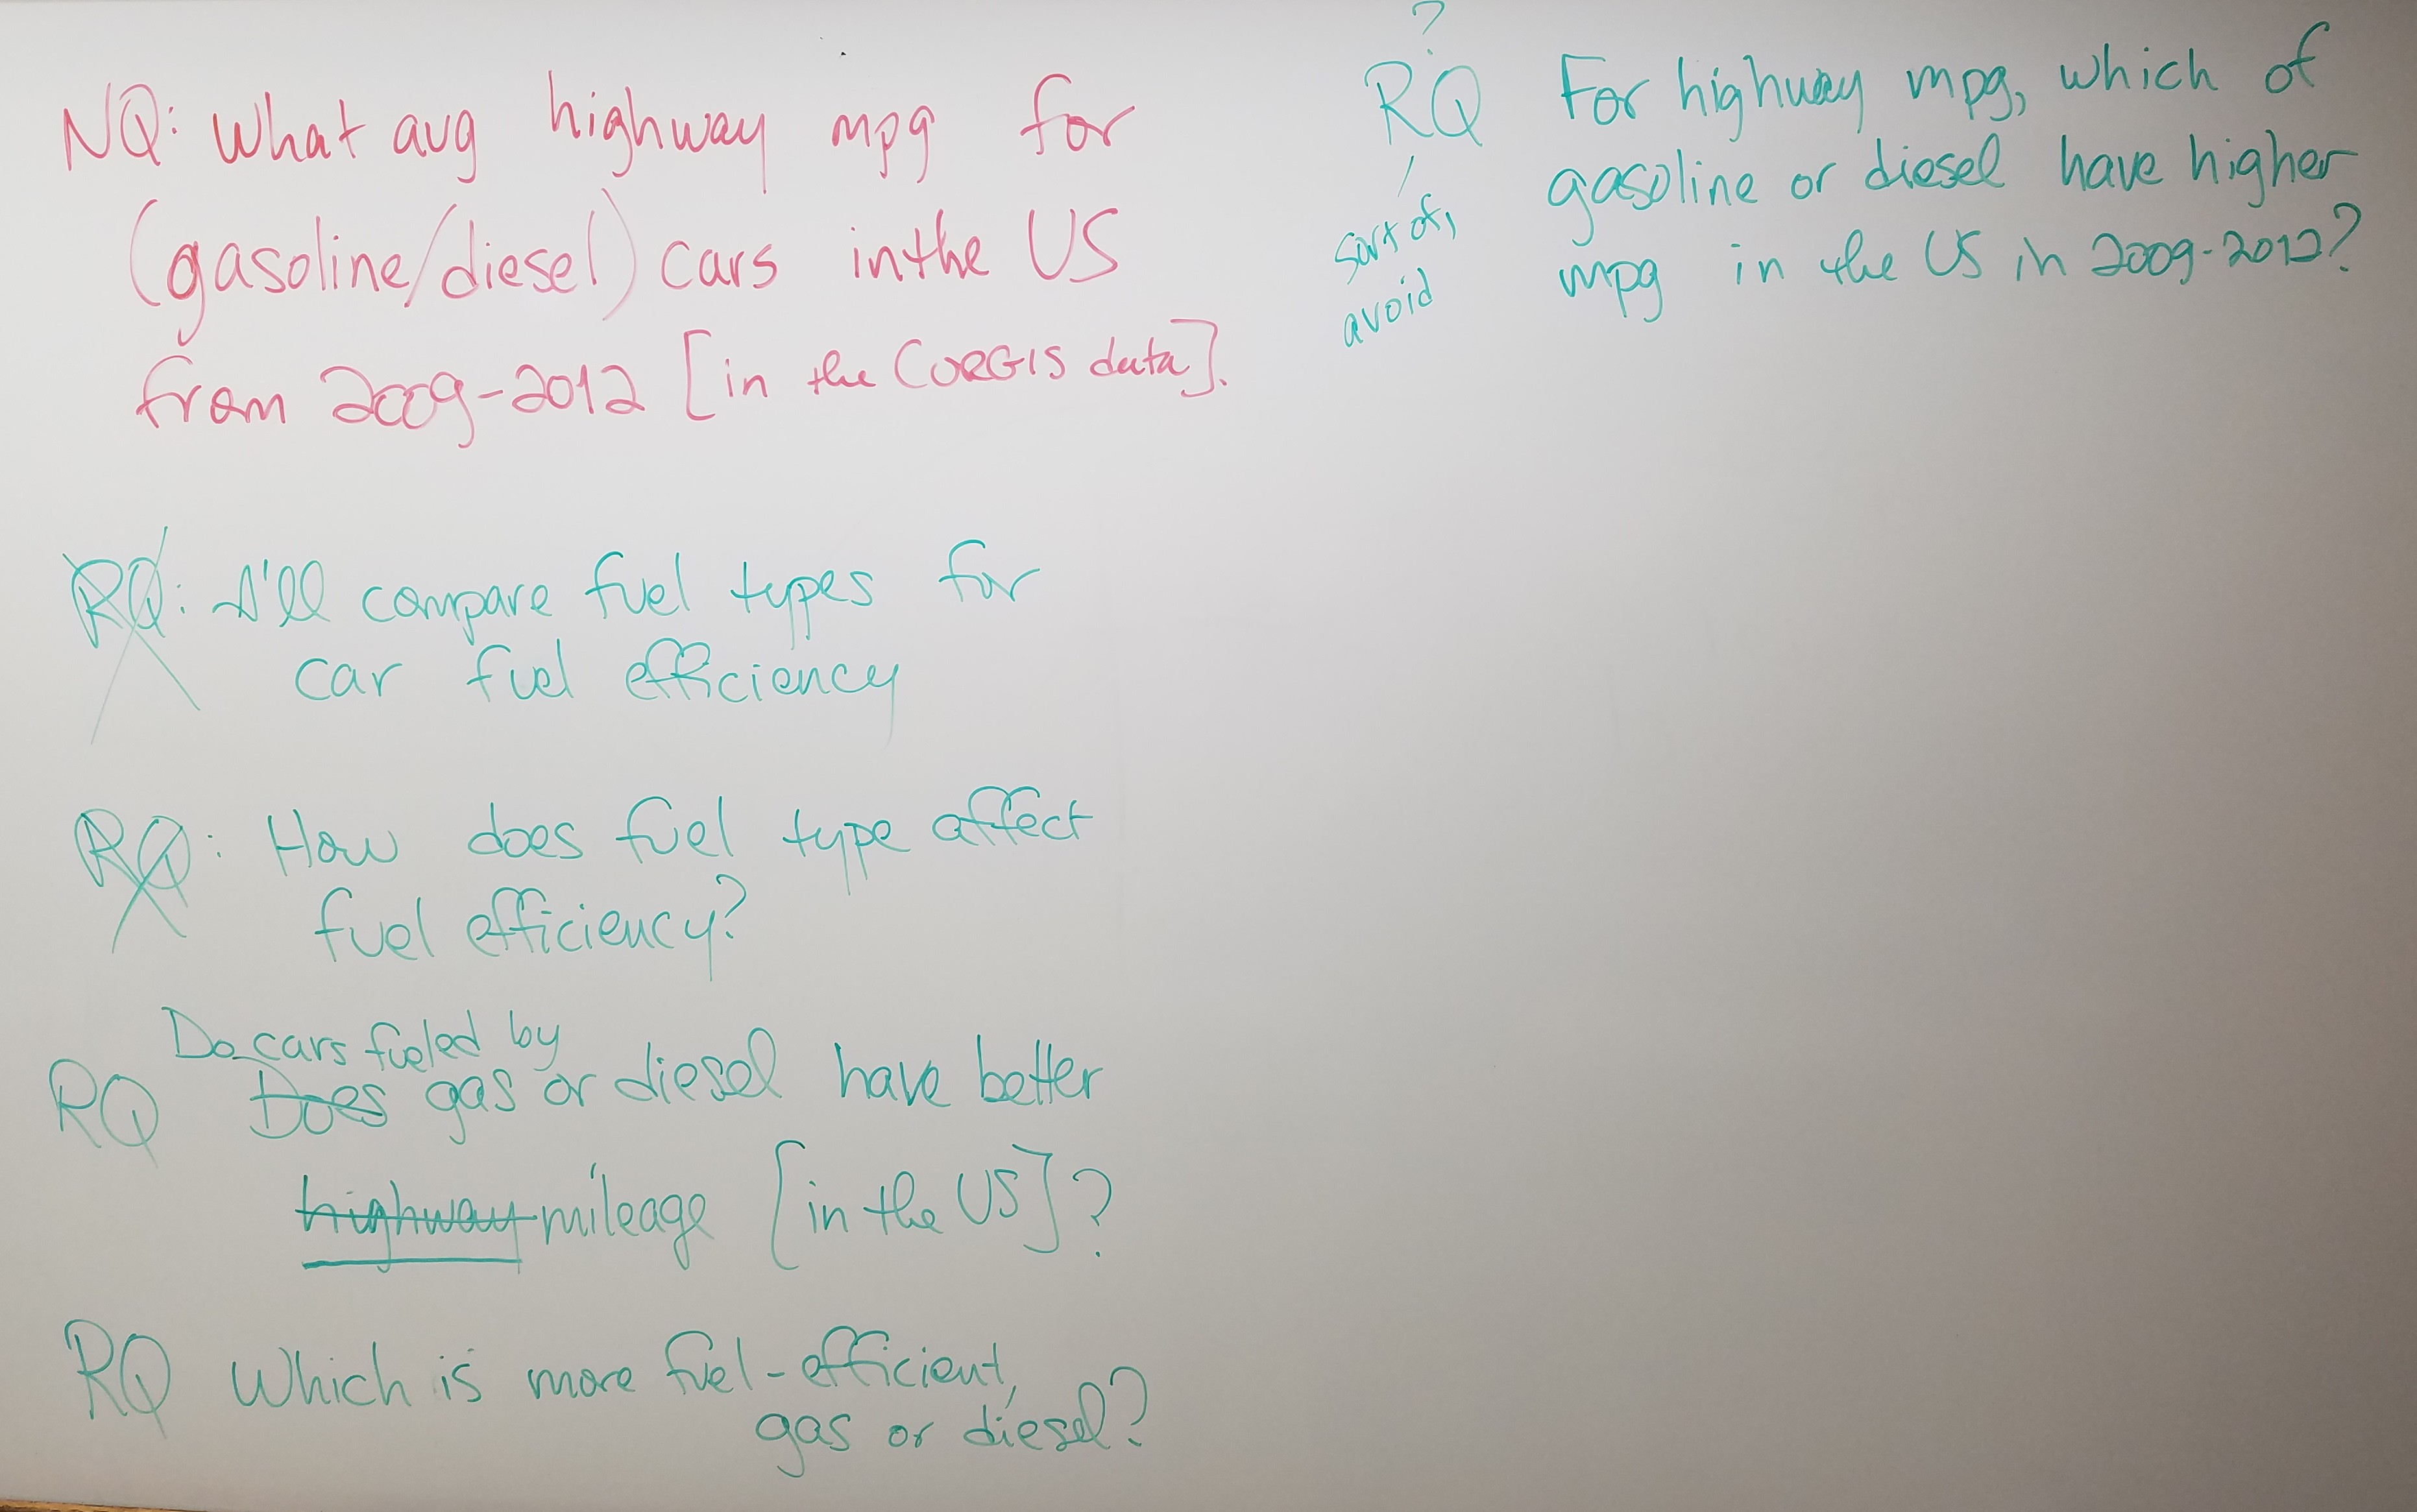 NQ: What avg highway mpg for
(gasoline/diesel) cars in the US
from 2009-2012 [in the CORGIS data].
RQ: I'll compare fuel types for
car fuel efficiency
RQ: How does fuel type affect
fuel efficiency?
Do cars fueled by
RQ Does gas or diesel have better
highway mileage [in the US]?
RQ Which is more fuel-efficient,
gas or diesel?
?
RQ For highway mpg, which of
gasoline or diesel have higher
mpg in the US in 2009-2012?
sort of,
avoid